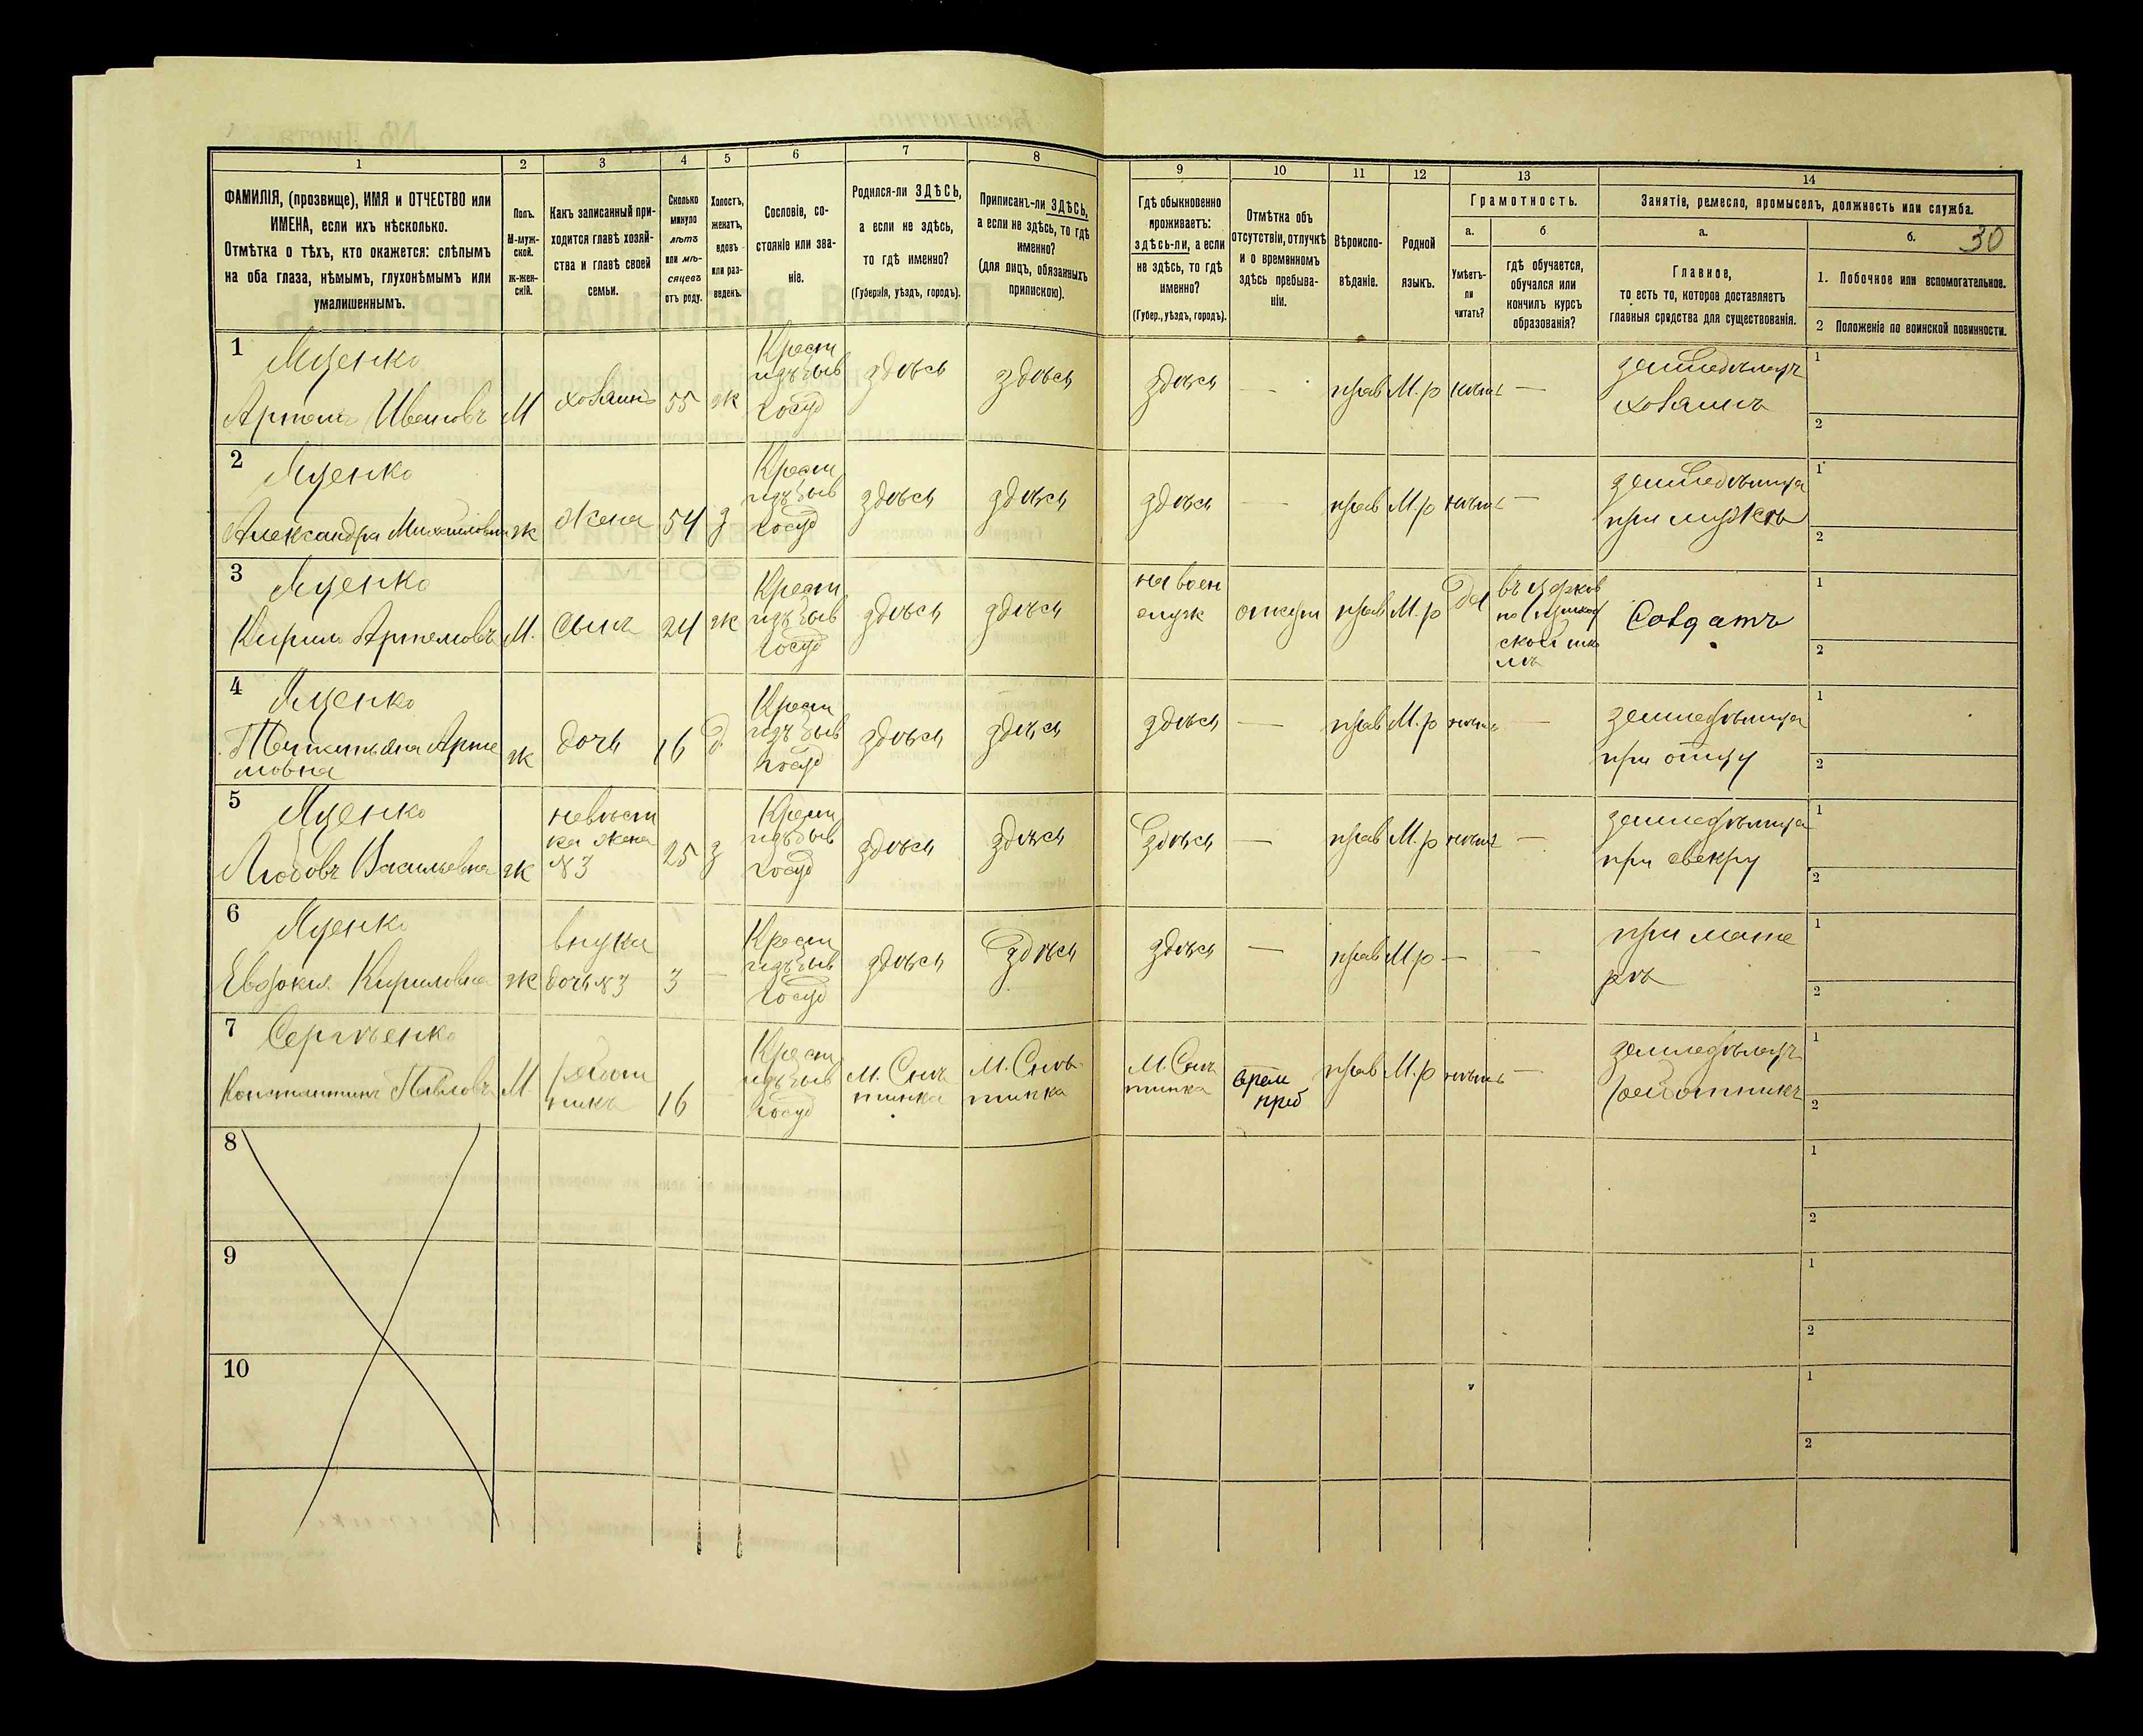 1
2
3
4
5
6
7
8
ФАМИЛІЯ, (прозвище), ИМЯ и ОТЧЕСТВО или
ИМЕНА, если ихъ нѣсколько.
Отмѣтка о тѣхъ, кто окажется: слѣпымъ
на оба глаза, нѣмымъ, глухонѣмымъ или
умалишеннымъ.
Полъ.
М-муж-
ской.
Ж-жен-
скій.
Какъ записанный при-
ходится главѣ хозяй-
ства и главѣ своей
семьи.
Сколько
минуло
лѣтъ
или мѣ-
сяцевъ
отъ роду.
Холостъ,
женатъ,
вдовъ
или раз-
веденъ.
Сословіе, со-
стояніе или зва-
ніе.
Родился-ли ЗДѢСЬ,
а если не здѣсь,
то гдѣ именно?
(Губернія, уѣздъ, городъ).
Приписанъ-ли ЗДѢСЬ,
а если не здѣсь, то гдѣ
именно?
(для лицъ, обязанныхъ
припискою).
9
10
11
12
13
14
Гдѣ обыкновенно
проживаетъ:
здѣсь-ли, а если
не здѣсь, то гдѣ
именно?
(Губер., уѣздъ, городъ).
Отмѣтка объ
отсутствіи, отлучкѣ
и о временномъ
здѣсь пребыва-
ніи.
Вѣроиспо-
вѣданіе.
Родной
языкъ.
Грамотность.
а.
б
Умѣетъ-
ли
читать?
гдѣ обучается,
обучался или
кончилъ курсъ
образованія?
Занятіе, ремесло, промыселъ, должность или служба.
а.
б.
30
Главное,
то есть то, которое доставляетъ
главныя средства для существованія.
1. Побочное или вспомогательное.
2 Положеніе по воинской повинности.
1
Яценко
Артемъ Ивановъ
М
хозяинъ
55
ж
Крест
изъ быв
госуд
здѣсь
здѣсь
здѣсь
—
прав
М. р
нѣтъ
—
земледѣлецъ
хозяинъ
1
2
2
Яценко
Александра Михайловна
ж
жена
54
з
Крест
изъ быв
госуд
здѣсь
здѣсь
здѣсь
—
прав
М. р
нѣтъ
—
земледѣлица
при мужѣ
1
2
3
Яценко
Кирилъ Артемовъ
М.
сынъ
24
ж
Крест
изъ быв
госуд
здѣсь
здѣсь
на воен
служ
отсут
прав
М. р
да
въ церков
но приход
ской шко
лѣ
Солдатъ
1
2
4
Яценко
Арте
мовна
ж
дочь
16
д
Крест
изъ быв
госуд
здѣсь
здѣсь
здѣсь
—
прав
М. р
нѣтъ
—
земледѣлица
при отцу
1
2
5
Яценко
Любовь Васильевна
ж
невѣст
ка жена
№3
25
з
Крест
изъ быв
госуд
здѣсь
здѣсь
здѣсь
—
прав
М. р
нѣтъ
—
земледѣлица
при свекру
1
2
6
Яценко
Евдокія Кириловна
ж
внука
дочь №3
3
—
Крест
изъ быв
госуд
здѣсь
здѣсь
здѣсь
—
прав
М. р
—
—
при мате
рѣ
1
2
7
Сергѣенко
Константинъ Павловъ
М
работ
никъ
16
Крест
изъ быв
госуд
М. Снѣ
тинка
М. Снѣ-
тинка
М. Снѣ
тинка
врем
преб
прав
М. р
нѣтъ
—
земледѣлецъ
работникъ
1
2
8
1
2
9
1
2
10
1
2